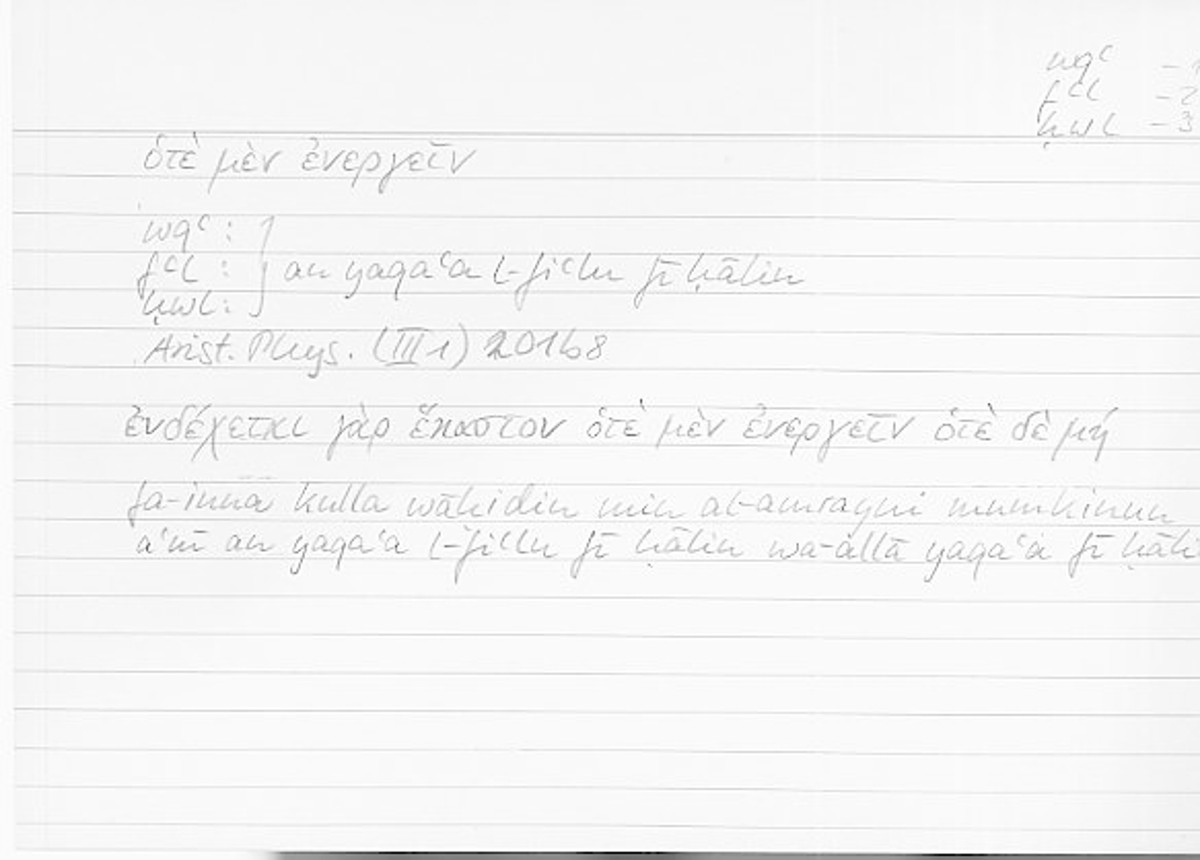 wqʿ – 1
fʿl – 2
ḥwl – 3
ὁτὲ μὲν ἐνεργεῖν
wqʿ :
fʿl : } an yaqaʿa l-fiʿlu fī ḥālin
ḥwl :
Arist. Phys. (III 1) 201b8
ἐνδέχεται γὰρ ἕκαστον ὁτὲ μὲν ἐνεργεῖν ὁτὲ δὲ μή
fa-inna kulla wāḥidin min al-amrayni mumkinun
aʿnī an yaqaʿa l-fiʿlu fī ḥālin wa-allā yaqaʿa fī